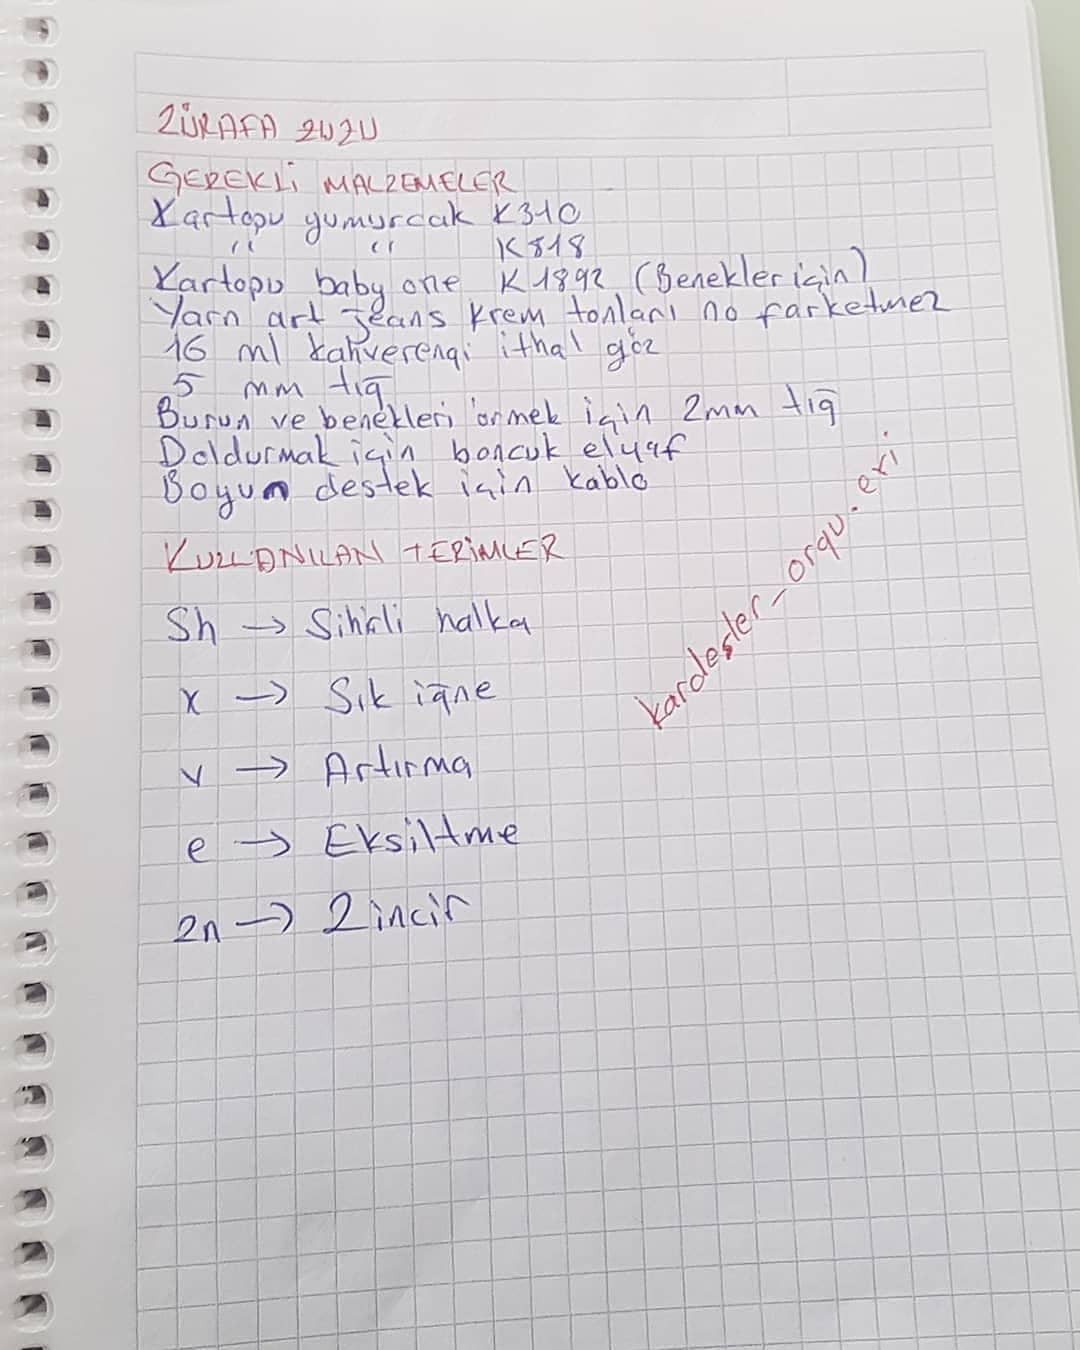 ZÜRAFA ZUZU
GEREKLİ MALZEMELER
Kartopu yumurcak K310
" " K818
Kartopu baby one K1892 (Benekler için)
Yarn art jeans krem tonları no farketmez
16 ml kahverengi ithal göz
5 mm tığ
Burun ve benekleri örmek için 2mm tığ
Doldurmak için boncuk elyaf
Boyun destek için kablo
KULLANILAN TERİMLER
Sh → Sihirli halka
x → Sık iğne
v → Artırma
e → Eksiltme
zn → Zincir
kardesler_orgu.evi.